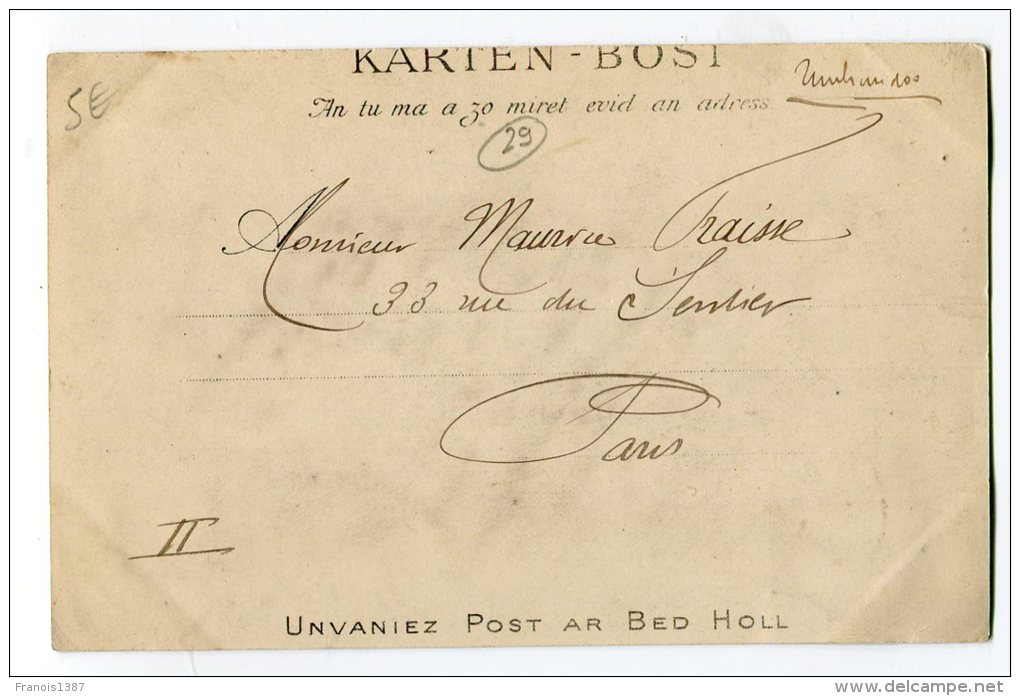 KARTEN-BOST
5€
An tu ma a zo miret evid an adress
29
Monsieur Maurice Fraisse
33 rue du Sentier
Paris
II
UNVANIEZ POST AR BED HOLL
Franois1387
www.delcampe.net